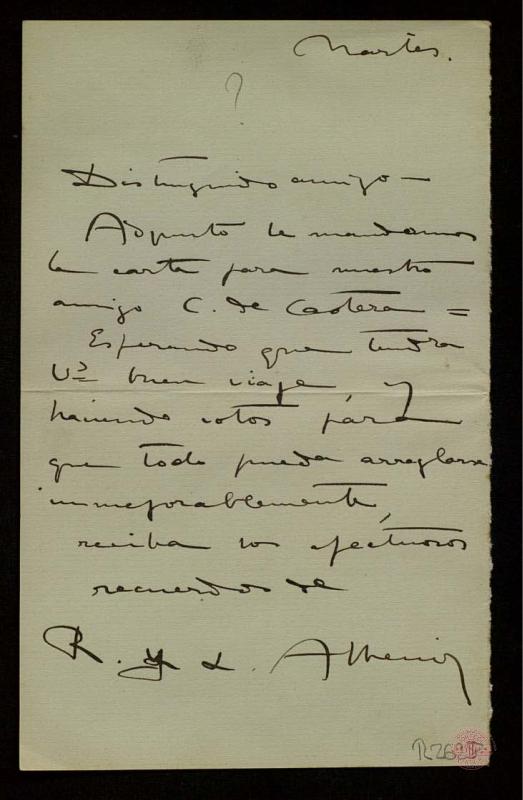 Martes.
?
Distinguido amigo —
Adjunto le mandamos
la carta para nuestro
amigo C. de Castera =
Esperando que tendra
Vd buen viaje y
haciendo votos para
que todo pueda arreglarse
inmejorablemente,
reciba los afectuosos
recuerdos de
R. y L. Albeniz